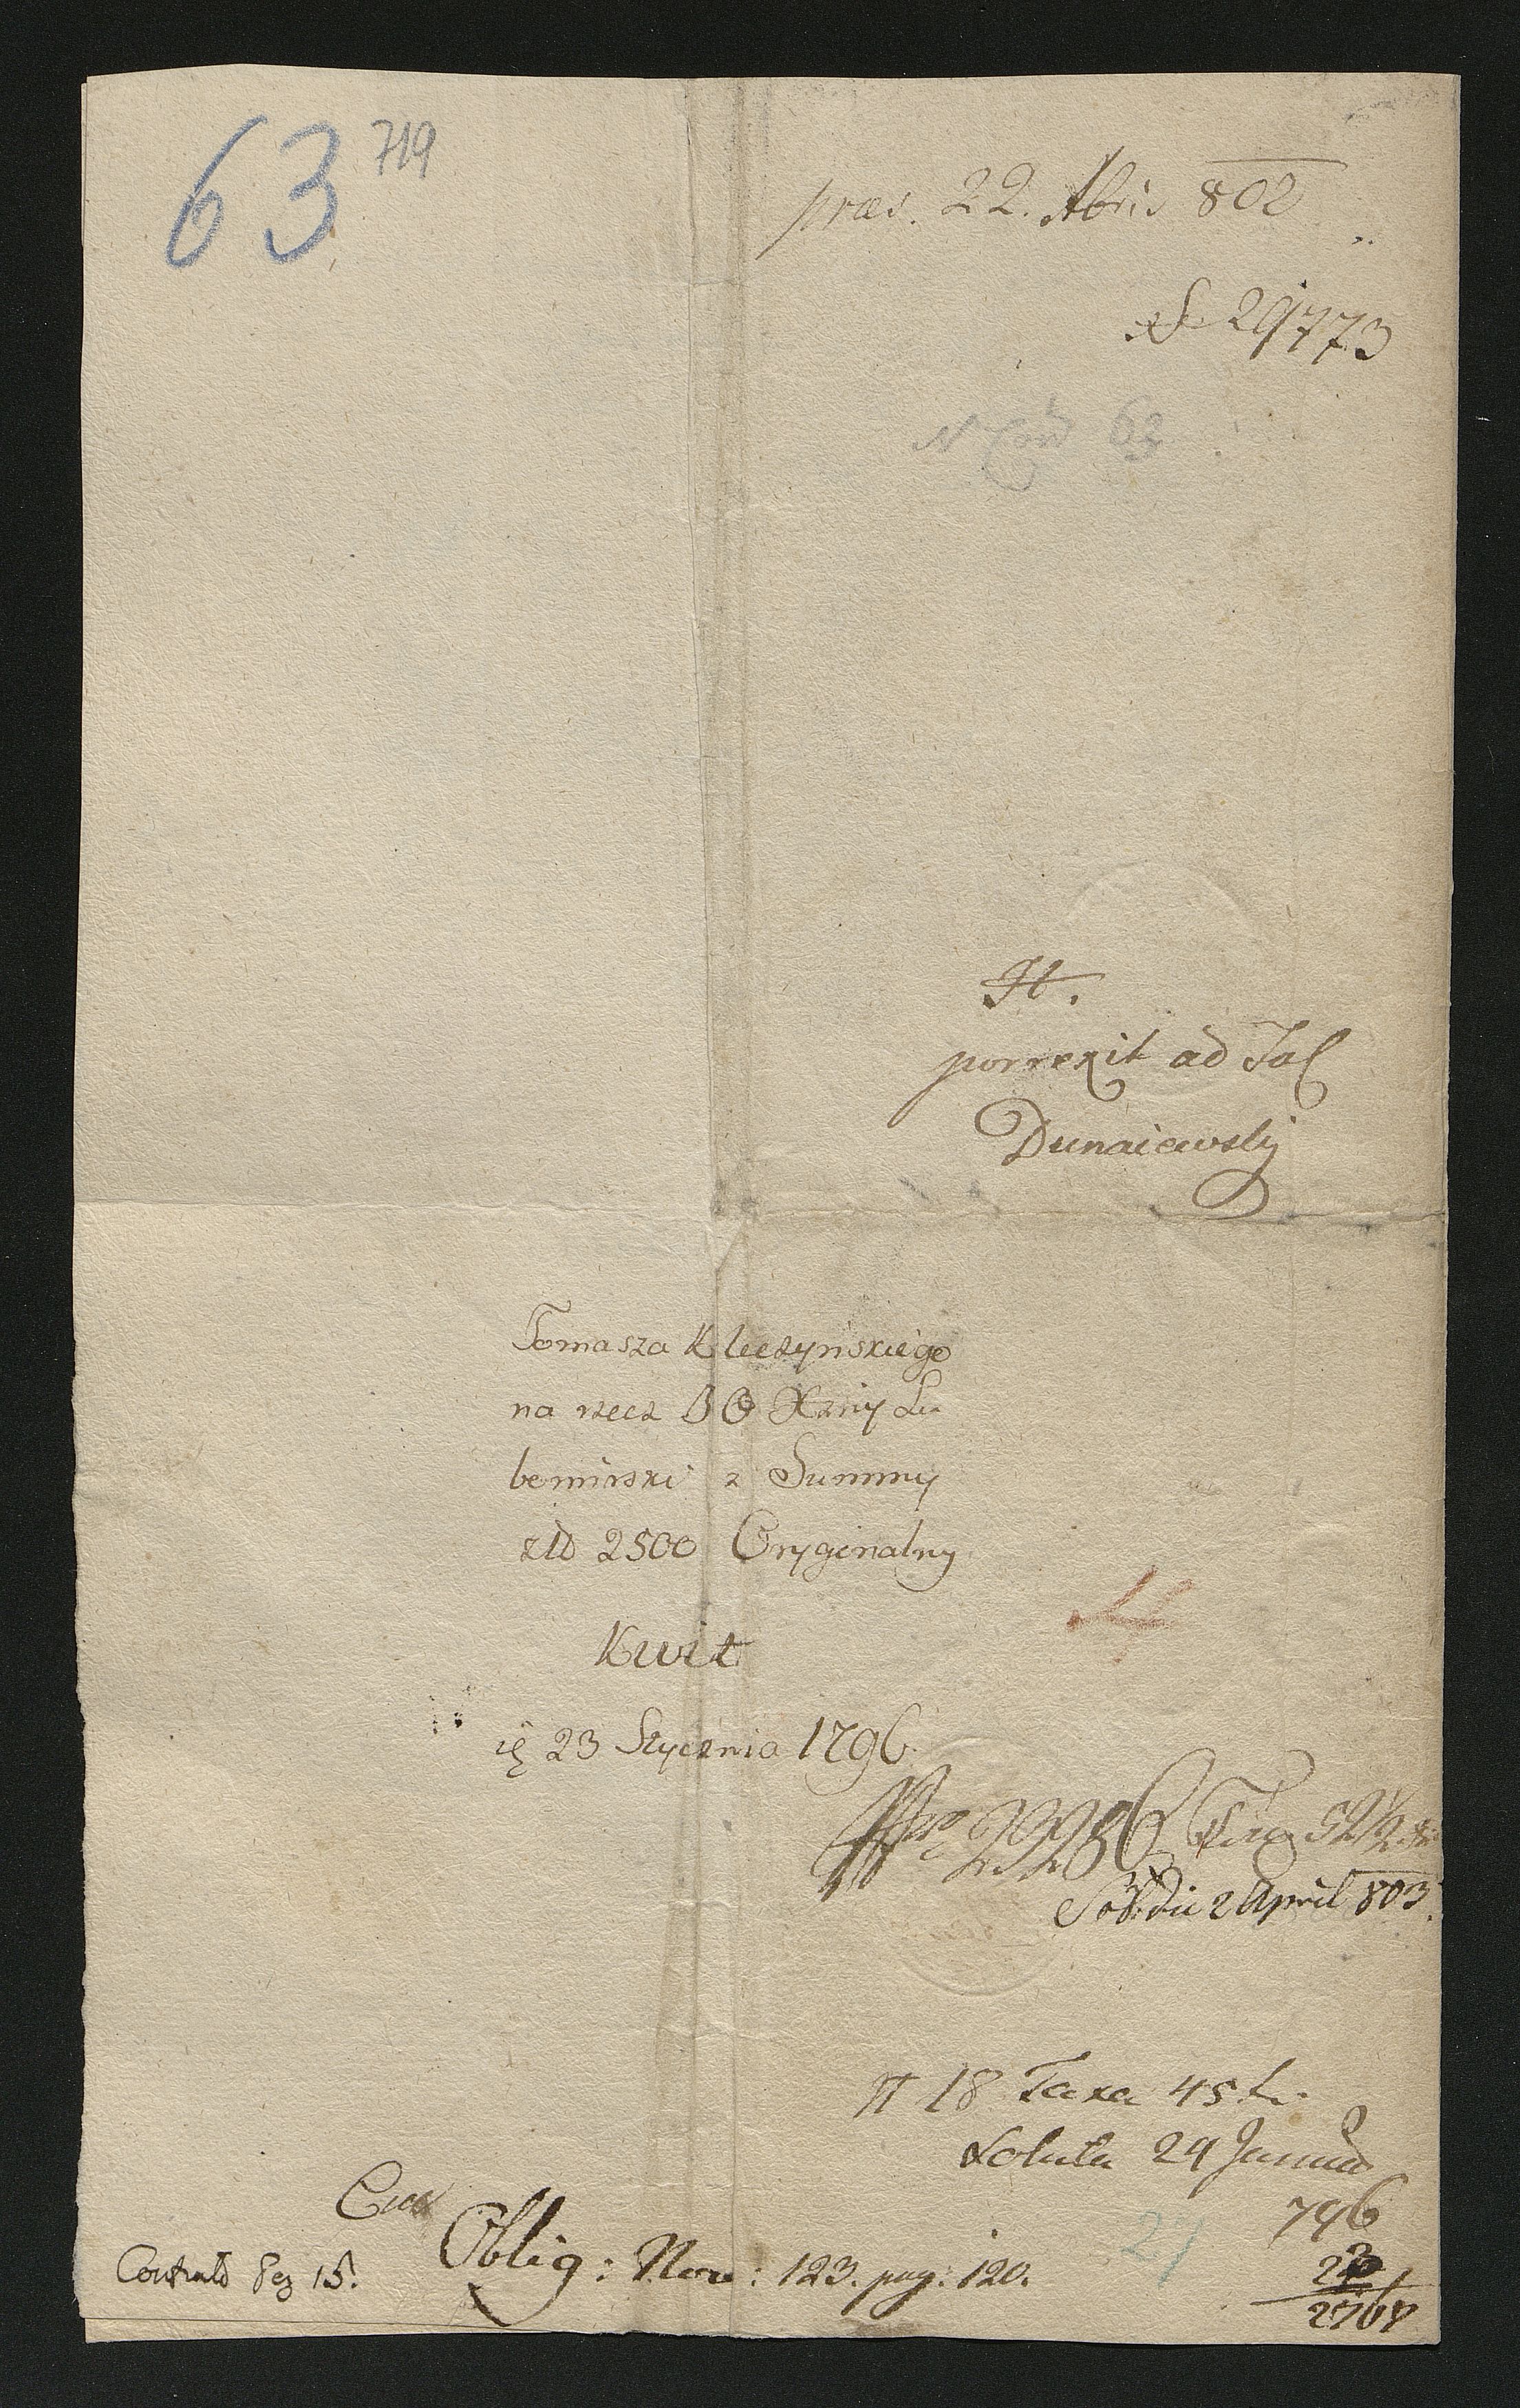 63 719
præs. 22. Xbris 802
29773
63
H.
porrexit ad Tab
Dunaiewsky
Tomasza Kleczynskiego
na rzecz JO Xzny Lu
bomirski z Summy
złb 2500 Oryginalny
Kwit
23 Stycznia 1796.
Nro 29286 Taxa 52 1/2 xr
Sol. die 2 April 803.
π 18 Taxa 45 f.
Soluta 29 Januar
796
21
Oblig: Nov: 123. pag: 120.
Contralb 8 eg 15.